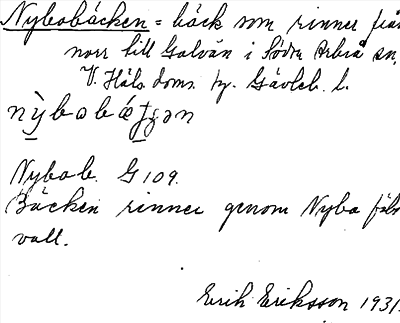 Nybobäcken = bäck som rinner från
norr till Galvån i Södra Arbrå sn,
V. Häls. doms. hy. Gävleb. l.
Nybo b. G 109.
Bäcken rinner genom Nybo
vall.
Erik Eriksson 1931.